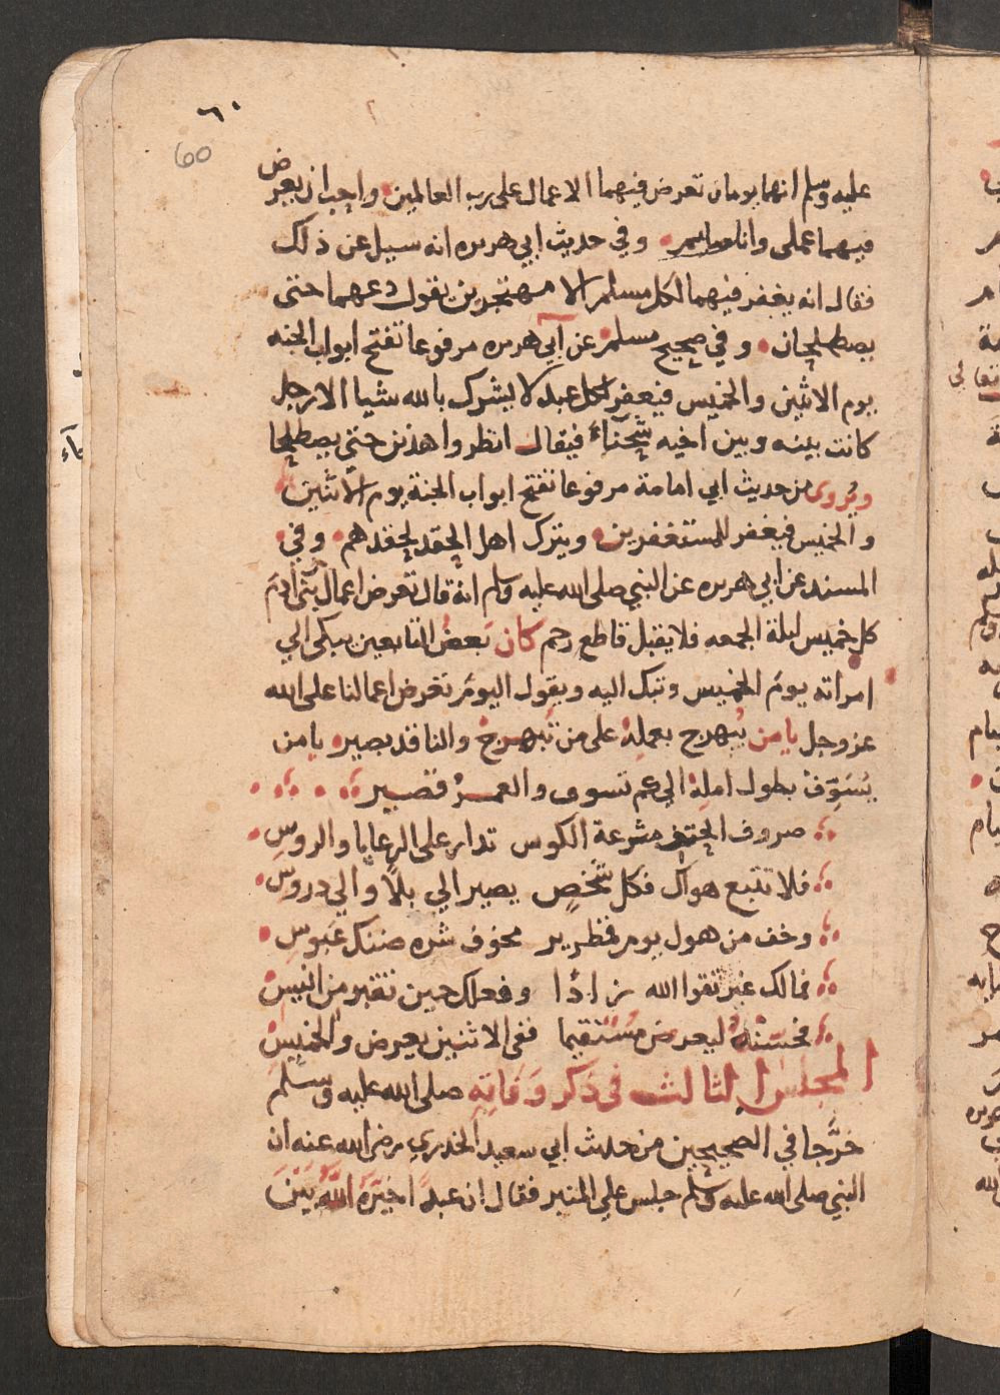 ٦٠
60
عليه وسلم انهما يومان تعرض فيهما الاعمال على رب العالمين واحب ان يعرض
فيهما عملى وانا صايم وفي حديث ابي هريره انه سيل عن ذلك
فقال انه يغفر فيهما لكل مسلم الا مهتجرين يقول دعهما حتى
يصطلحان وفي صحيح مسلم عن ابي هريره مرفوعا تفتح ابواب الجنه
يوم الاثنين والخميس فيغفر لكل عبد لا يشرك بالله شيا الا رجل
كانت بينه وبين اخيه شحنآء فيقال انظروا هذين حتى يصطلحا
ويروى من حديث ابي امامة مرفوعا تفتح ابواب الجنة يوم الاثنين
والخميس فيغفر للمستغفرين ويترك اهل الحقد لحقدهم وفي
المسند عن ابي هريره عن النبي صلى الله عليه وسلم انه قال تعرض اعمال بني ادم
كل خميس ليلة الجمعه فلا يقبل قاطع رحم كان بعض التابعين يبكى الي
امراته يوم الخميس وتبك اليه ويقول اليوم تعرض اعمالنا على الله
عز وجل يا من يبهرج بعمله على من تبهرج والناقد بصير يا من
يسوف بطول امله الي كم تسوف والعمر قصير
صروف الحتف مترعة الكوس تدار على الرعايا والروس
فلا تتبع هواك فكل شخص يصير الي بلا والي دروس
وخف من هول يوم قمطرير مخوف شره ضنك عبوس
فمالك غير تقوا الله زادا وفعلك حين تقبر من انيس
فحسنه ليعرض مستقيما ففى الاثنين يعرض والخميس
المجلس الثالث في ذكر وفاته صلى الله عليه وسلم
خرجا في الصحيحين من حديث ابي سعيد الخدري رضي الله عنه ان
النبي صلى الله عليه وسلم جلس علي المنبر فقال ان عبدا خيره الله بين